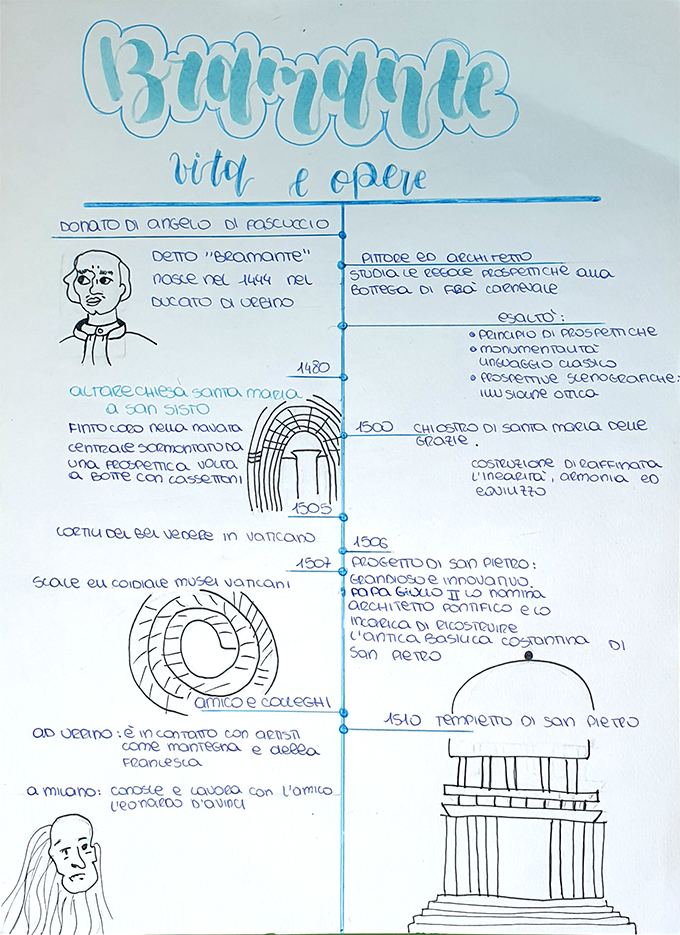 Bramante
vita e opere
DONATO DI ANGELO DI PASCUCCIO
DETTO "BRAMANTE"
NASCE NEL 1444 NEL
DUCATO DI URBINO
PITTORE ED ARCHITETTO
STUDIA LE REGOLE PROSPETTICHE ALLA
BOTTEGA DI FRA' CARNEVALE
ESALTÒ:
• PRINCIPIO DI PROSPETTICHE
• MONUMENTALITÀ
LINGUAGGIO CLASSICO
• PROSPETTIVE SCENOGRAFICHE:
ILLUSIONE OTTICA
1480
ALTARE CHIESA SANTA MARIA
A SAN SISTO
FINTO CORO NELLA NAVATA
CENTRALE SORMONTATO DA
UNA PROSPETTICA VOLTA
A BOTTE CON CASSETTONI
1500 CHIOSTRO DI SANTA MARIA DELLE
GRAZIE.
COSTRUZIONE DI RAFFINATA
L'INEARITÀ, ARMONIA ED
EQUILIZZO
1505
CORTILE DEL BEL VEDERE IN VATICANO
1506
PROGETTO DI SAN PIETRO:
GRANDIOSO E INNOVATIVO.
PAPA GIULIO II LO NOMINA
ARCHITETTO PONTIFICO E LO
INCARICA DI RICOSTRUIRE
L'ANTICA BASILICA COSTANTINA DI
SAN PIETRO
1507
SCALE ELICOIDIALE MUSEI VATICANI
AMICO E COLLEGHI
AD URBINO: È IN CONTATTO CON ARTISTI
COME MANTEGNA E DELLA
FRANCESCA
A MILANO: CONOSCE E LAVORA CON L'AMICO
LEONARDO D'AVINCI
1510 TEMPIETTO DI SAN PIETRO